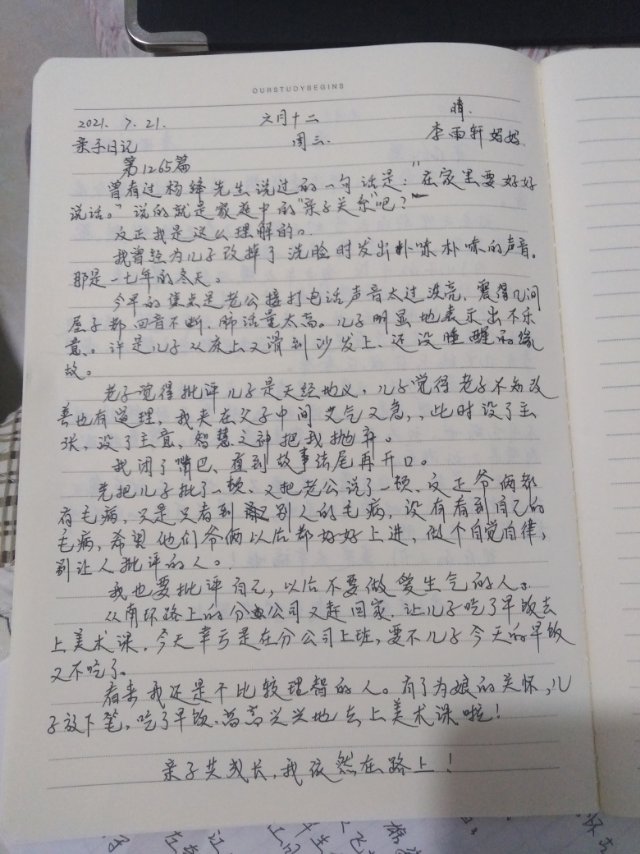 OURSTUDYBEGINS
2021. 7. 21. 六月十二 晴.
亲子日记 周三. 李雨轩妈妈
第1265篇
曾看过杨绛先生说过的一句话是：“在家里要好好
说话。”说的就是家庭中的“亲子关系”吧？
反正我是这么理解的。
我曾经为儿子改掉了洗脸时发出扑哧扑哧的声音。
那是一七年的冬天。
今早的 是老公接打电话声音太过洪亮，震得几间
屋子都回音不断、肺活量太高。儿子明显地表示出不乐
意。许是儿子从床上又滑到沙发上、还没睡醒的缘
故。
老子觉得批评儿子是天经地义，儿子觉得老子不知改
善也有道理，我夹在父子中间又气又急，，此时没了主
张，没了主意、智慧之神把我抛弃。
我闭了嘴巴、直到故事结尾再开口。
先把儿子批了一顿、又把老公说了一顿、反正爷俩都
有毛病，又是只看到别人的毛病，没有看到自己的
毛病，希望他们爷俩以后都好好上进，做个自觉自律，
别让人批评的人。
我也要批评自己，以后不要做爱生气的人。
从南环路上的分公司又赶回家，让儿子吃了早饭去
上美术课，今天幸亏是在分公司上班，要不儿子今天的早饭
又不吃了。
看来我还是个比较理智的人。有了为娘的关怀，儿
子放下笔，吃了早饭、高高兴兴地去上美术课啦！
亲子共成长，我依然在路上！